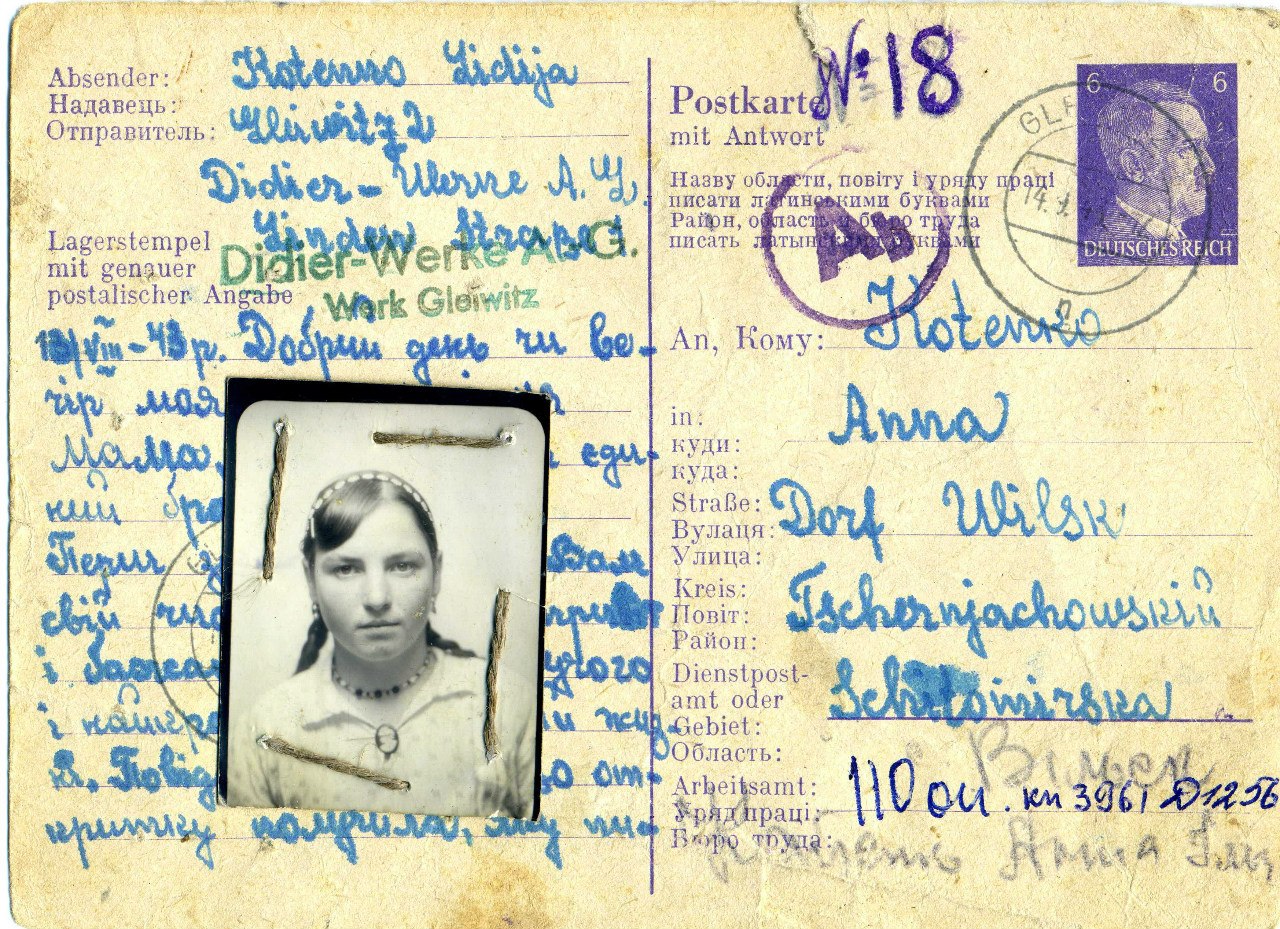 Absender:
Надавець:
Отправитель:
Kotenko Lidija
Gleiwitz 2
Didier-Werke A. G.
Linden Strasse
Lagerstempel
mit genauer
postalischer Angabe
Didier-Werke A.-G.
Werk Gleiwitz
13/VIII-43р. Добрий день чи ве-
чір моя
Мама, єди-
ний бра
Пешу Вам
свій приві
і бажаю
і нашего жит-
тя. Повід що от-
критку получила, яку пи-
Postkarte
mit Antwort
№ 18
Назву области, повіту і уряду праці
писати латинськими буквами
Район, область и бюро труда
писать латынскими буквами
Ab
6 6
DEUTSCHES REICH
GLEI
14.
An, Кому: Kotenko
in:
куди:
куда:
Anna
Straße:
Вулаця:
Улица:
Dorf Wilsk
Kreis:
Повіт:
Район:
Tschernjachowskiй
Dienstpost-
amt oder
Gebiet:
Область:
Schitomirska
Вільск
Arbeitsamt:
Уряд праці:
Бюро труда:
110 оп. кп 3961 D1256
Анна